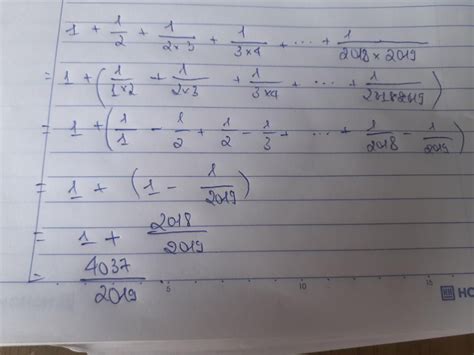 1 + 1/2 + 1/2×3 + 1/3×4 + ... + 1/2018×2019
= 1 + (1/1×2 + 1/2×3 + 1/3×4 + ... + 1/2018×2019)
= 1 + (1/1 - 1/2 + 1/2 - 1/3 + ... + 1/2018 - 1/2019)
= 1 + (1 - 1/2019)
= 1 + 2018/2019
= 4037/2019
5 10 15
HO